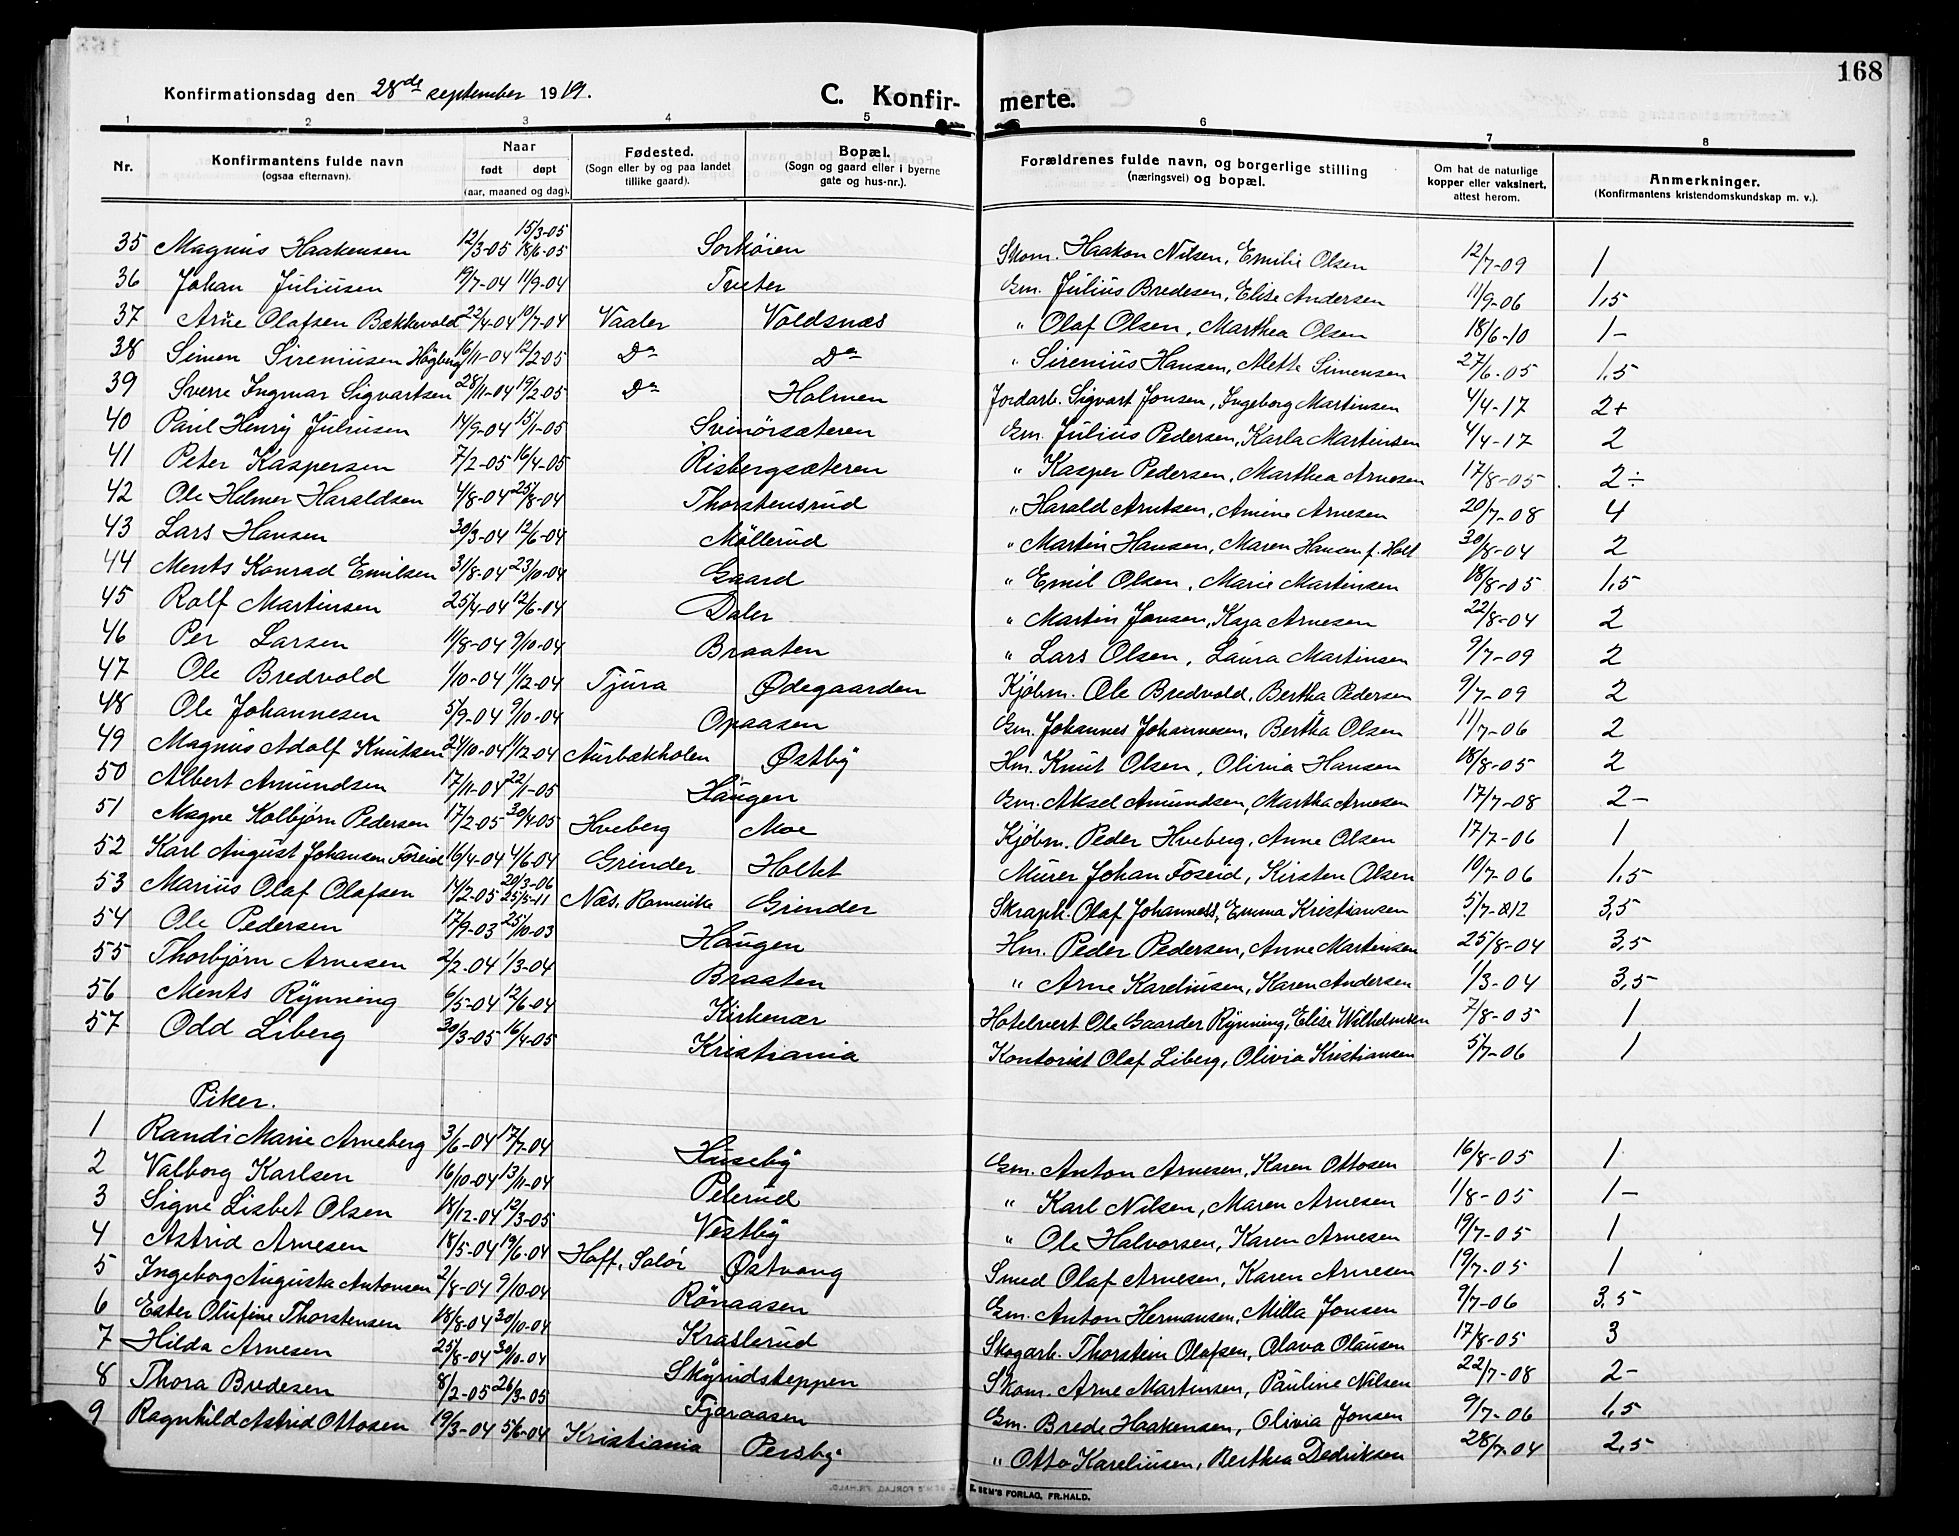 168
Konfirmationsdag den 28de september 1919. C. Konfirmerte.
1 2 3 4 5 6 7 8
Nr. Konfirmantens fulde navn (ogsaa efternavn). Naar født døpt (aar, maaned og dag). Fødested. (Sogn eller by og paa landet tillike gaard). Bopæl. (Sogn og gaard eller i byerne gate og hus-nr.). Forældrenes fulde navn, og borgerlige stilling (næringsvei) og bopæl. Om hat de naturlige kopper eller vaksinert, attest herom. Anmerkninger. (Konfirmantens kristendomskundskap m. v.).
35 Magnus Haakensen 12/3-05 15/3-05 18/6-05 Sorköien Skom. Haakon Nilsen, Emilie Olsen 12/7-09 1
36 Johan Juliusen 19/7-04 11/9-04 Tveter Gm. Julius Bredesen, Elise Andersen 11/9-06 1,5
37 Arne Olafsen Bækkevold 22/4-04 10/7-04 Vaaler Voldsnæs " Olaf Olsen, Marthea Olsen 18/6-10 1-
38 Simen Sireniusen Högberg 16/11-04 12/2-05 Do Do " Sirenius Hansen, Mette Simensen 27/6-05 1,5
39 Sverre Ingmar Sigvartsen 28/11-04 19/2-05 Do Holmen Jordarb. Sigvart Jonsen, Ingeborg Martinsen 4/4-17 2+
40 Paul Henry Juliusen 14/9-04 15/1-05 Svinörsæteren Gm. Julius Pedersen, Karla Martinsen 4/4-17 2
41 Peter Kaspersen 7/2-05 16/4-05 Risbergsæteren " Kasper Pedersen, Marthea Arnesen 17/8-05 2÷
42 Ole Helmer Haraldsen 4/8-04 25/8-04 Thorstensrud " Harald Arntsen, Amine Arnesen 20/7-08 4
43 Lars Hansen 30/3-04 12/6-04 Möllerud " Martin Hansen, Maren Hansen f. Holt 30/8-04 2
44 Ments Konrad Emilsen 31/8-04 23/10-04 Gaard " Emil Olsen, Marie Martinsen 18/8-05 1,5
45 Rolf Martinsen 25/4-04 12/6-04 Daler " Martin Jonsen, Kaja Arnesen 22/8-04 2
46 Per Larsen 11/8-04 9/10-04 Braaten " Lars Olsen, Laura Martinsen 9/7-09 2
47 Ole Bredvold 1/10-04 11/12-04 Tjura Ødegaarden Kjöbm. Ole Bredvold, Bertha Pedersen 9/7-09 2
48 Ole Johannesen 5/9-04 9/10-04 Opaasen Gm. Johannes Johannesen, Bertha Olsen 11/7-06 2
49 Magnus Adolf Knutsen 24/10-04 11/12-04 Aurbækholen Østby Hm. Knut Olsen, Olivia Hansen 18/8-05 2
50 Albert Amundsen 17/11-04 22/1-05 Haugen Gm. Aksel Amundsen, Martha Arnesen 17/7-08 2-
51 Magne Kolbjørn Pedersen 17/2-05 30/4-05 Hveberg Moe Kjöbm. Peder Hveberg, Anne Olsen 17/7-06 1
52 Karl August Johansen Foseid 16/4-04 4/6-04 Grinder Holtet Murer Johan Foseid, Kirsten Olsen 19/7-06 1,5
53 Marius Olaf Olafsen 14/2-05 20/3-06 25/5-11 Næs, Romerike Grinder Skraph. Olaf Johanness, Emma Kristiansen 5/7-12 3,5
54 Ole Pedersen 17/9-03 25/10-03 Haugen Hm. Peder Pedersen, Anne Martinsen 25/8-04 3,5
55 Thorbjørn Arnesen 2/2-04 1/3-04 Braaten " Arne Kareliusen, Karen Andersen 1/3-04 3,5
56 Ments Rynning 6/5-04 12/6-04 Kirkenær Hotelvert Ole Gaarder Rynning, Elise Wilhelmsen 7/8-05 1
57 Odd Liberg 30/3-05 16/4-05 Kristiania Kontorist Olaf Liberg, Olivia Kristiansen 5/7-06 1
Piker.
1 Randi Marie Arneberg 3/6-04 17/7-04 Huseby Gm. Anton Arnesen, Karen Ottosen 16/8-05 1
2 Valborg Karlsen 16/10-04 13/11-04 Pelerud " Karl Nilsen, Maren Arnesen 1/8-05 1-
3 Signe Lisbet Olsen 18/12-04 12/3-05 Vestby " Ole Halvorsen, Karen Arnesen 19/7-05 1
4 Astrid Arnesen 18/5-04 19/6-04 Hoff, Solør Østvang Smed Olaf Arnesen, Karen Arnesen 19/7-05 1
5 Ingeborg Augusta Antonsen 2/8-04 9/10-04 Rönaasen Gm. Anton Hermansen, Milla Jonsen 9/7-06 3,5
6 Ester Olufine Thorstensen 18/8-04 30/10-04 Kraslerud Skogarb. Thorstein Olafsen, Olava Olausen 17/8-05 3
7 Hilda Arnesen 25/8-04 30/10-04 Skyrudsteppen Skom. Arne Martinsen, Pauline Nilsen 22/7-08 2-
8 Thora Bredesen 8/2-05 26/3-05 Tjaraasen Gm. Brede Haakensen, Olivia Jonsen 9/7-06 1,5
9 Ragnhild Astrid Ottosen 19/3-04 5/6-04 Kristiania Persby " Otto Kareliusen, Berthea Dedriksen 28/7-04 2,5
E. SEM'S FORLAG, FR.HALD.